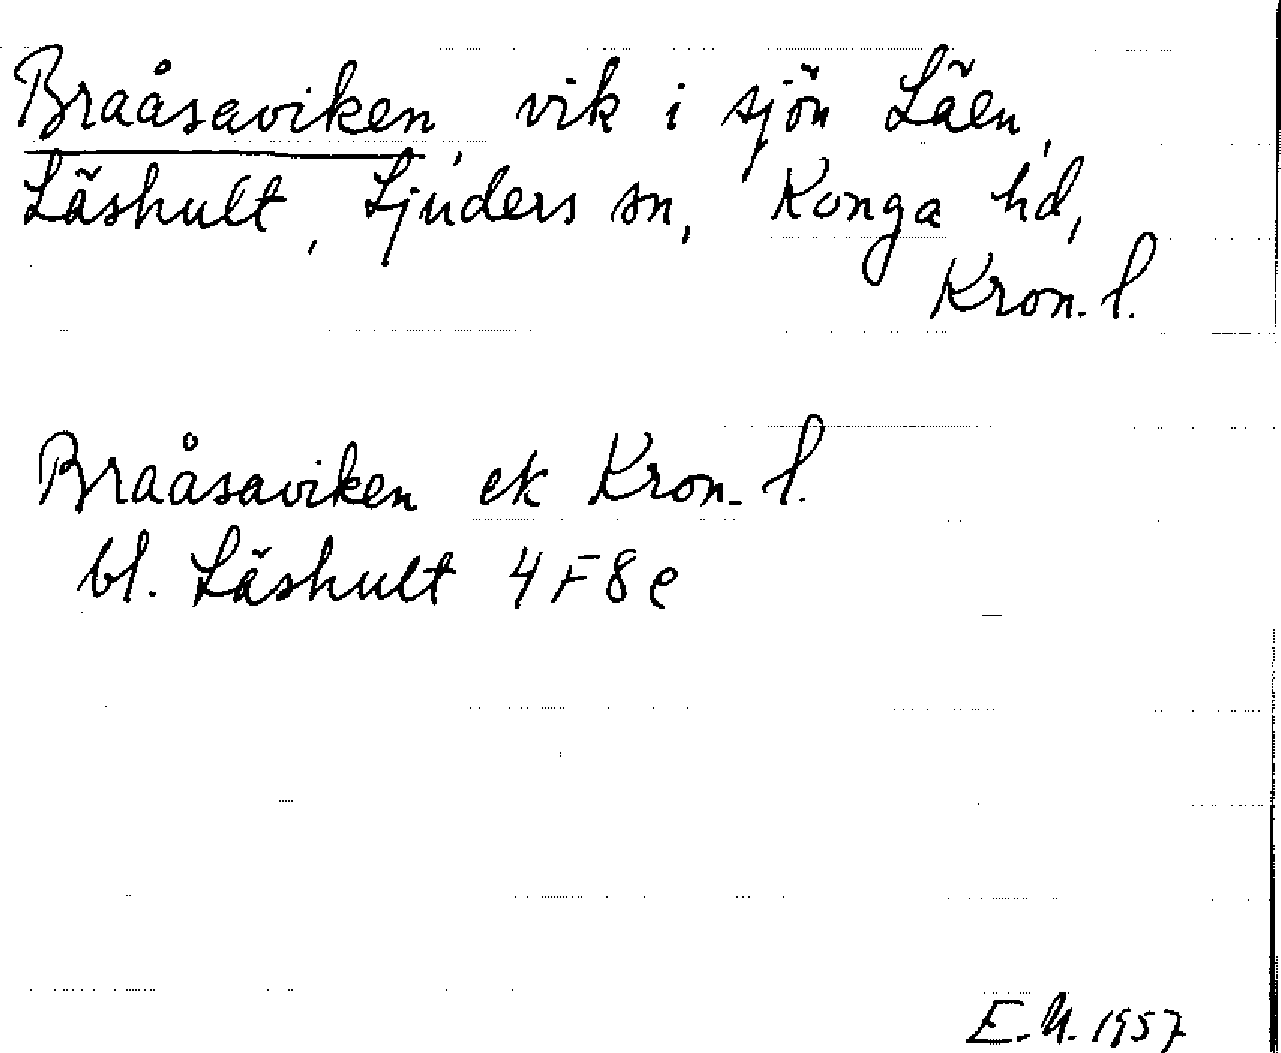 Braåsaviken, vik i sjön Läen,
Läshult, Ljuders sn, Konga hd,
Kron. l.
Braåsaviken ek Kron. l.
bl. Läshult 4F8e
E.U. 1957